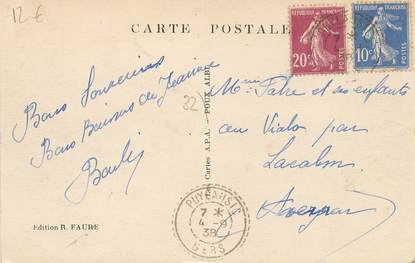 12 €
CARTE POSTALE
REPUBLIQUE FRANÇAISE
20c
POSTES
REPUBLIQUE FRANÇAISE
10c
POSTES
Bons Souvenirs
Bons Baisers de Jeanne
32
Cartes A.P.A. - POUX ALBI
Mme Fabre et ses enfants
au Viala par
Lacalm
Aveyron
PUYCASQUIER
7 *
4 - 9
38
GERS
Edition R. FAURE